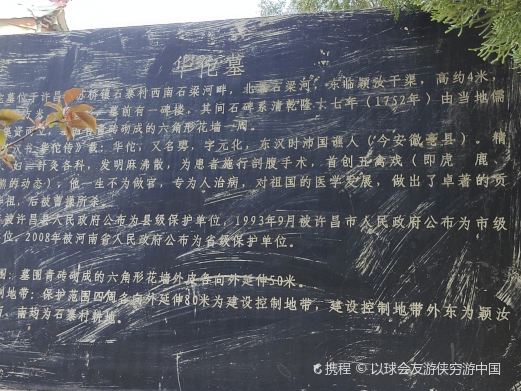 华佗墓
墓位于许昌 桥镇石寨村西南石梁河畔,北靠石梁河,东临颍汝干渠,高约4米,
墓前有一碑楼,其间石碑系清乾隆十七年(1752年)由当地儒
青砖砌成的六角形花墙一周。
华佗传》载:华佗,又名旉,字元化,东汉时沛国谯人(今安徽亳县)。精
妇 针灸各科,发明麻沸散,为患者施行剖腹手术,首创五禽戏(即虎 鹿
的动态),他一生不为做官,专为人治病,对祖国的医学发展,做出了卓著的贡
后被曹操所杀。
被许昌县人民政府公布为县级保护单位,1993年9月被许昌市人民政府公布为市级
位,2008年被河南省人民政府公布为省级保护单位。
围:墓围青砖砌成的六角形花墙外皮各向外延伸50米。
制地带:保护范围四周各向外延伸80米为建设控制地带,建设控制地带外东为颍汝
南均为石寨村耕地。
携程 © 以球会友游侠穷游中国